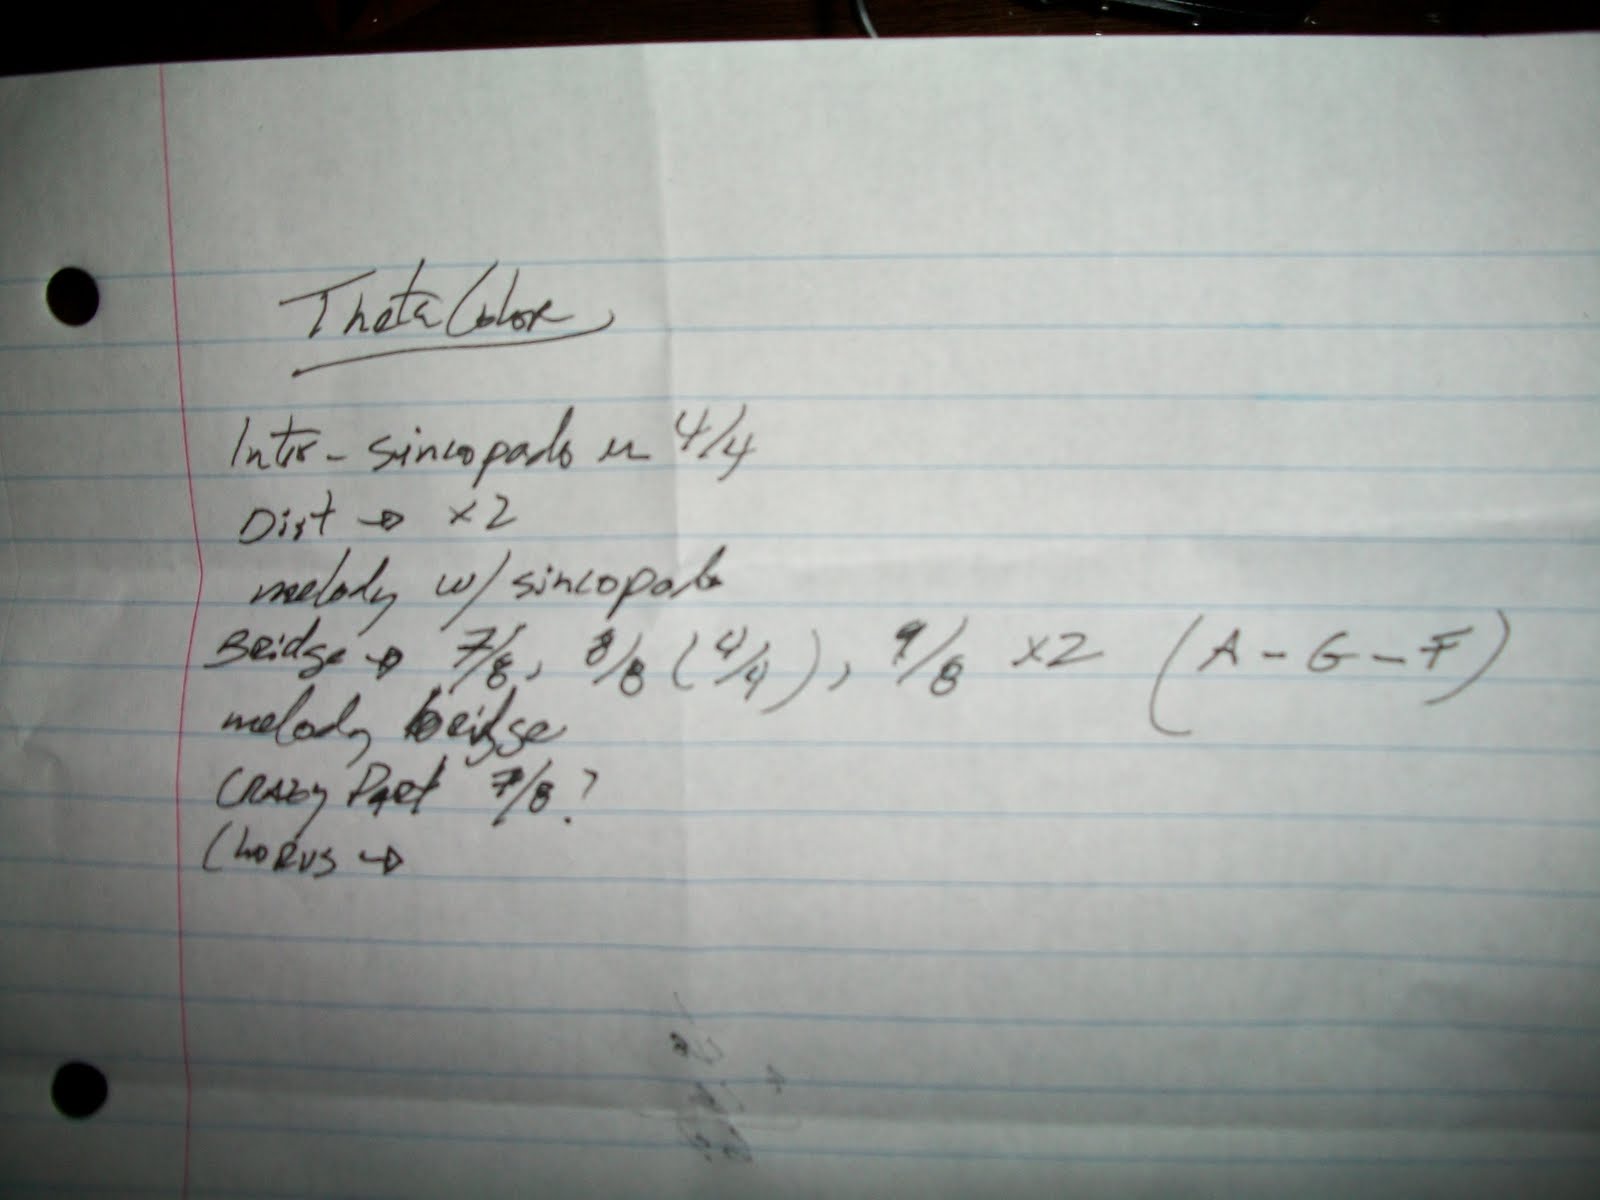 Theta Color
Intro - sincopado en 4/4
Dist → x2
melody w/ sincopado
Bridge → 7/8, 8/8 (4/4), 9/8 x2 (A - G - F)
melody bridge
CRAZY Part 7/8?
Chorus →